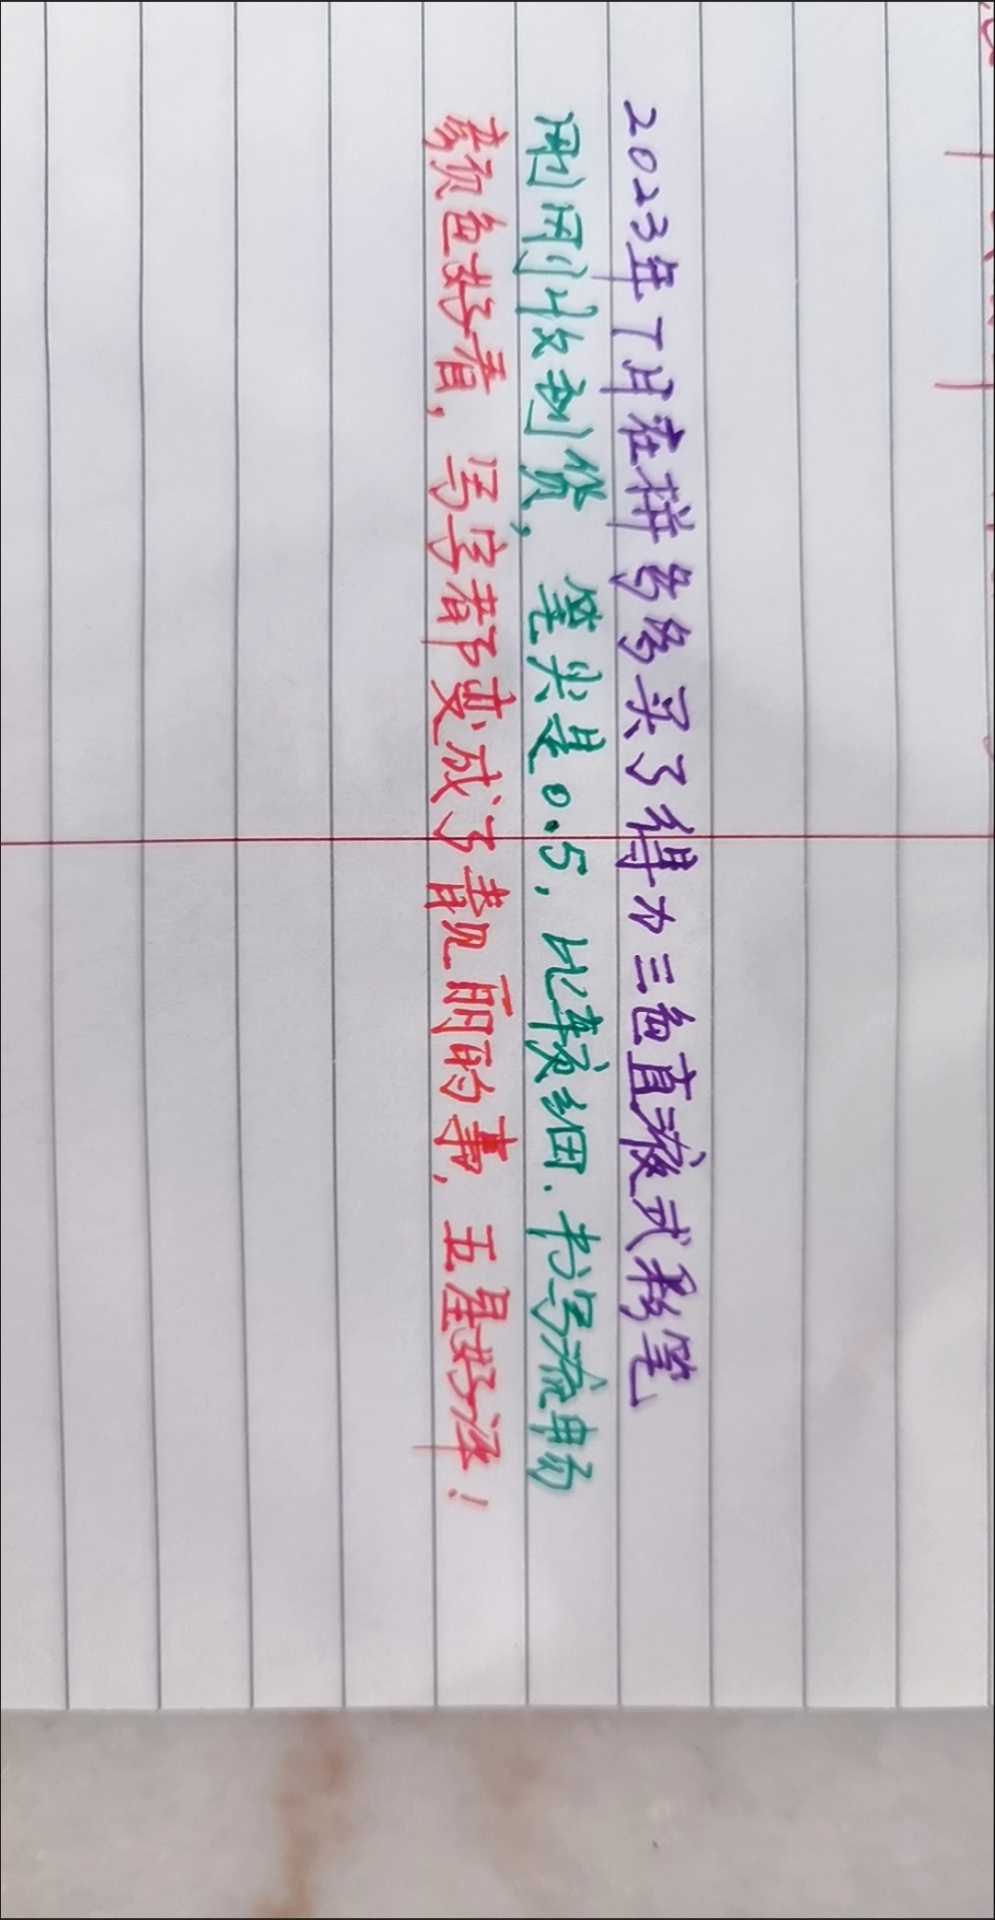 2023年7月在拼多多买了得力三色直液式彩笔
刚刚收到货，笔尖是0.5，比较细.书写流畅
颜色好看，写字都变成了靓丽的事，五星好评！